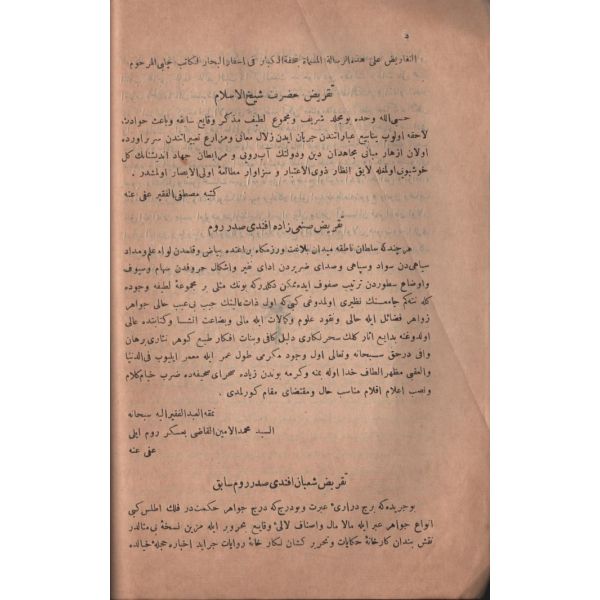 ٥
التقاريض على هذه الرسالة المسماة بتحفة الكبار فى اسفار البحار لكاتب چلبى المرحوم
تقريض حضرت شيخ الاسلام
حسبى الله وحده بو مجلد شريف ومجموع لطيف مذكر وقايع سابقه وباعث حوادث
لاحقه اولوب ينابيع عباراتندن جريان ايدن زلال معانى ومزارع تعبيراتندن سربرآورده
اولان ازهار مبانى مجاهدان دين ودولتك آب رويى و مرابطان جهاد انديشانك كل
خوشبويى اولمغله لايق انظار ذوى الاعتبار و سزاوار مطالعهٔ اولى الابصار اولمشدر .
كتبه مصطفى الفقير عفى عنه
تقريض صنعى زاده افندى صدر روم
هر چند كه سلطان ناطقه ميدان بلاغت ورزمكاه براعتده بياض وقلمدن لواء علم ومداد
سياهى دن سواد وسپاهى وصداى ضربردن اداى نفير واشكال حروفدن سهام وسيوف
واوضاع سطوردن ترتيب صفوف ايده ممكن دكلدركه بونك مثلى بر مجموعهٔ لطيفه وجوده
كله نته كم جامعنك نظيرى اولمدوغى كبى كه اول ذات عالينك جيب بى عيب حالى جواهر
زواهر فضائل ايله حالى ونقود علوم وكمالات ايله مالى وبضاعت انشا وكتابتده عالى
اولدوغنه بدايع آثار كلك سحرنكارى دليل كافى وبنات افكار طبع كوهر نثارى برهان
وافى در حق سبحانه وتعالى اول وجود مكرمى طول عمر ايله معمر ايليوب فى الدنيا
والعقبى مظهر الطاف خدا اوله بمنه وكرمه بوندن زياده صحراى صحيفه ده ضرب خيام كلام
ونصب اعلام اقلام مناسب حال ومقتضاى مقام كورلمدى .
نمقه العبد الفقير اليه سبحانه
السيد محمد الامين القاضى بعسكر روم ايلى
عفى عنه
تقريض شعبان افندى صدر روم سابق
بو جريده كه برج درارىٔ عبرت ودرج كه درج جواهر حكمت در فلك اطلس كبى
انواع جواهر عبر ايله مالا مال واصناف لآلىٔ وقايع بحر وبر ايله مزين نسخهٔ بى مثالدر
نقش بندان كارخانهٔ حكايات وتحرير كشان نكارخانهٔ روايات جرايد اخباره حجلهٔ خيالده